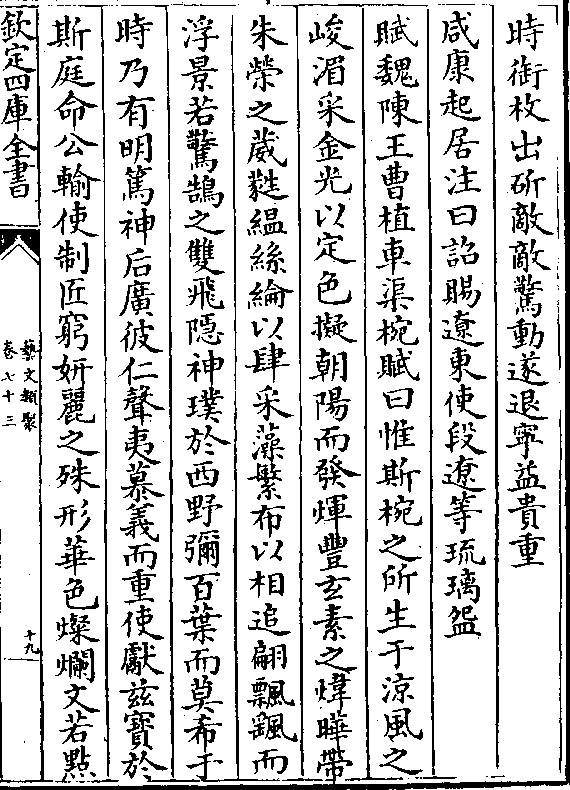 時銜枚出斫敵敵驚動遂退寧益貴重
咸康起居注曰詔賜遼東使段遼等琉璃盌
賦魏陳王曹植車渠椀賦曰惟斯椀之所生于涼風之
峻湄采金光以定色擬朝陽而發煇豐玄素之煒曄帶
朱榮之葳蕤緼絲綸以肆采藻繁布以相追翩飄颻而
浮景若驚鵠之雙飛隐神璞於西野彌百葉而莫希于
時乃有明篤神后廣彼仁聲夷慕義而重使獻兹寳於
斯庭命公輸使制匠窮妍麗之殊形華色燦爛文若點
欽定四庫全書
藝文類聚
卷七十三
十九